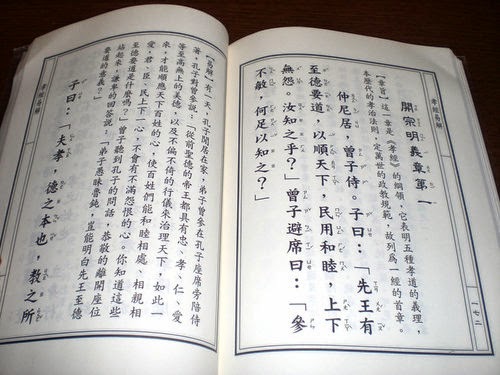 孝經易解
開宗明義章第一
【章旨】這一章是《孝經》的綱領,它表明五種孝道的義理,
本歷代的孝治法則,定萬世的政教規範,故列爲一經的首章。
仲尼居,曾子侍。子曰:「先王有
至德要道,以順天下,民用和睦,上下
無怨。汝知之乎?」曾子避席曰:「參
不敏,何足以知之?」
【易解】有一天,孔子閒居在家,弟子曾參在孔子座席旁陪侍
著,孔子對曾參說:「從前聖德的帝王都具有忠、孝、仁、愛
等至高無上的美德,以及不偏不倚的行儀來治理天下,如此一
來,才能順應天下百姓的心,使百姓們能和睦相處、相親相
愛,君、臣、民上下一心,不會有不滿怨恨的心。你知道這些
至德要道是什麼嗎?」曾子聽到孔子的問話,恭敬的離開座位
站起來,謙卑的回答說:「弟子愚昧魯鈍,豈能明白先王至德
要道的意義?」
子曰:「夫孝,德之本也,教之所
孝經易解